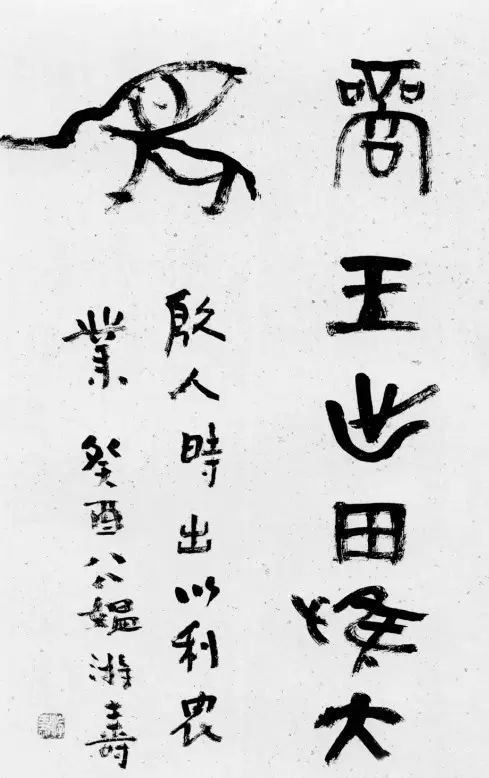 商王出田獲大
象
殷人時出以利農
業 癸酉八八媼游壽